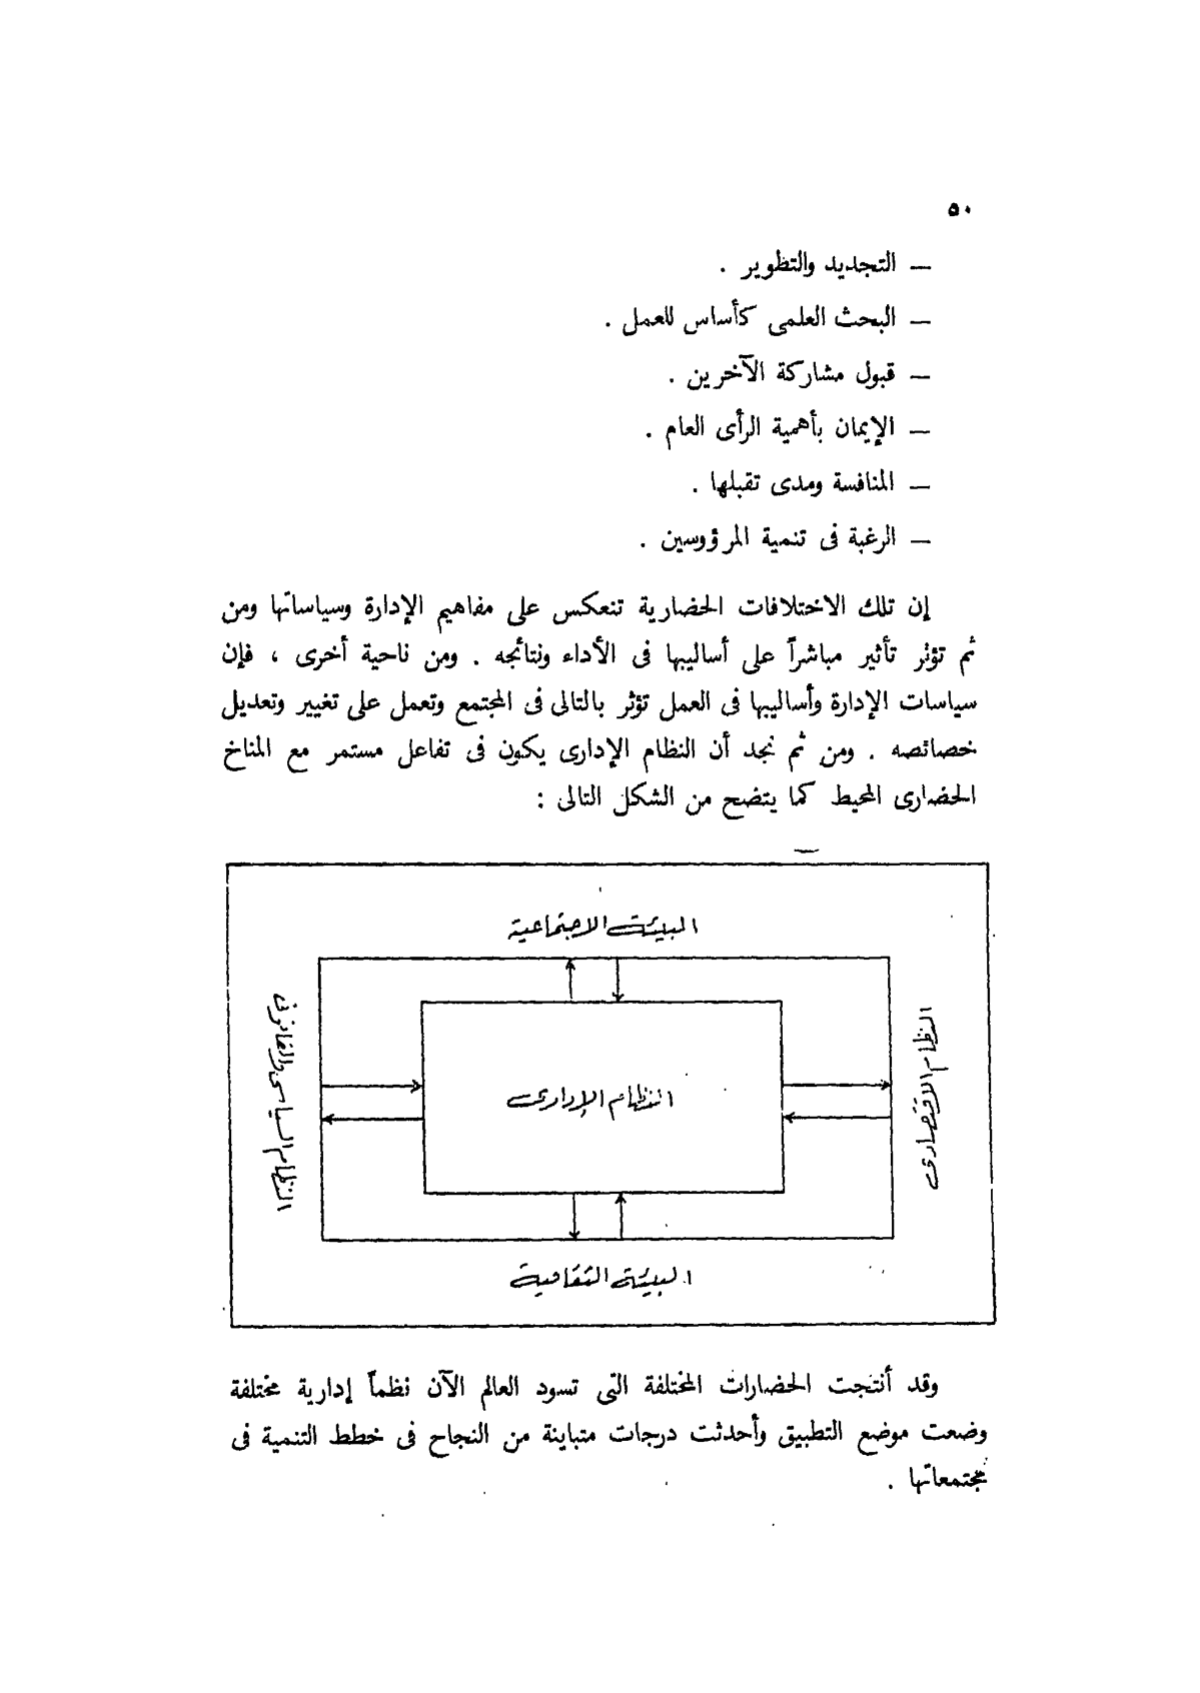 ٥٠
— التجديد والتطوير .
— البحث العلمى كأساس للعمل .
— قبول مشاركة الآخرين .
— الإيمان بأهمية الرأى العام .
— المنافسة ومدى تقبلها .
— الرغبة فى تنمية المرؤوسين .
إن تلك الاختلافات الحضارية تنعكس على مفاهيم الإدارة وسياساتها ومن
ثم تؤثر تأثير مباشراً على أساليبها فى الأداء ونتائجه . ومن ناحية أخرى ، فإن
سياسات الإدارة وأساليبها فى العمل تؤثر بالتالى فى المجتمع وتعمل على تغيير وتعديل
خصائصه . ومن ثم نجد أن النظام الإدارى يكون فى تفاعل مستمر مع المناخ
الحضارى المحيط كما يتضح من الشكل التالى :
البيئة الاجتماعية
النظام الاقتصادى
النظام الإدارى
النظام السياسى والقانونى
البيئة الثقافية
وقد أنتجت الحضارات المختلفة التى تسود العالم الآن نظماً إدارية مختلفة
وضعت موضع التطبيق وأحدثت درجات متباينة من النجاح فى خطط التنمية فى
مجتمعاتها .